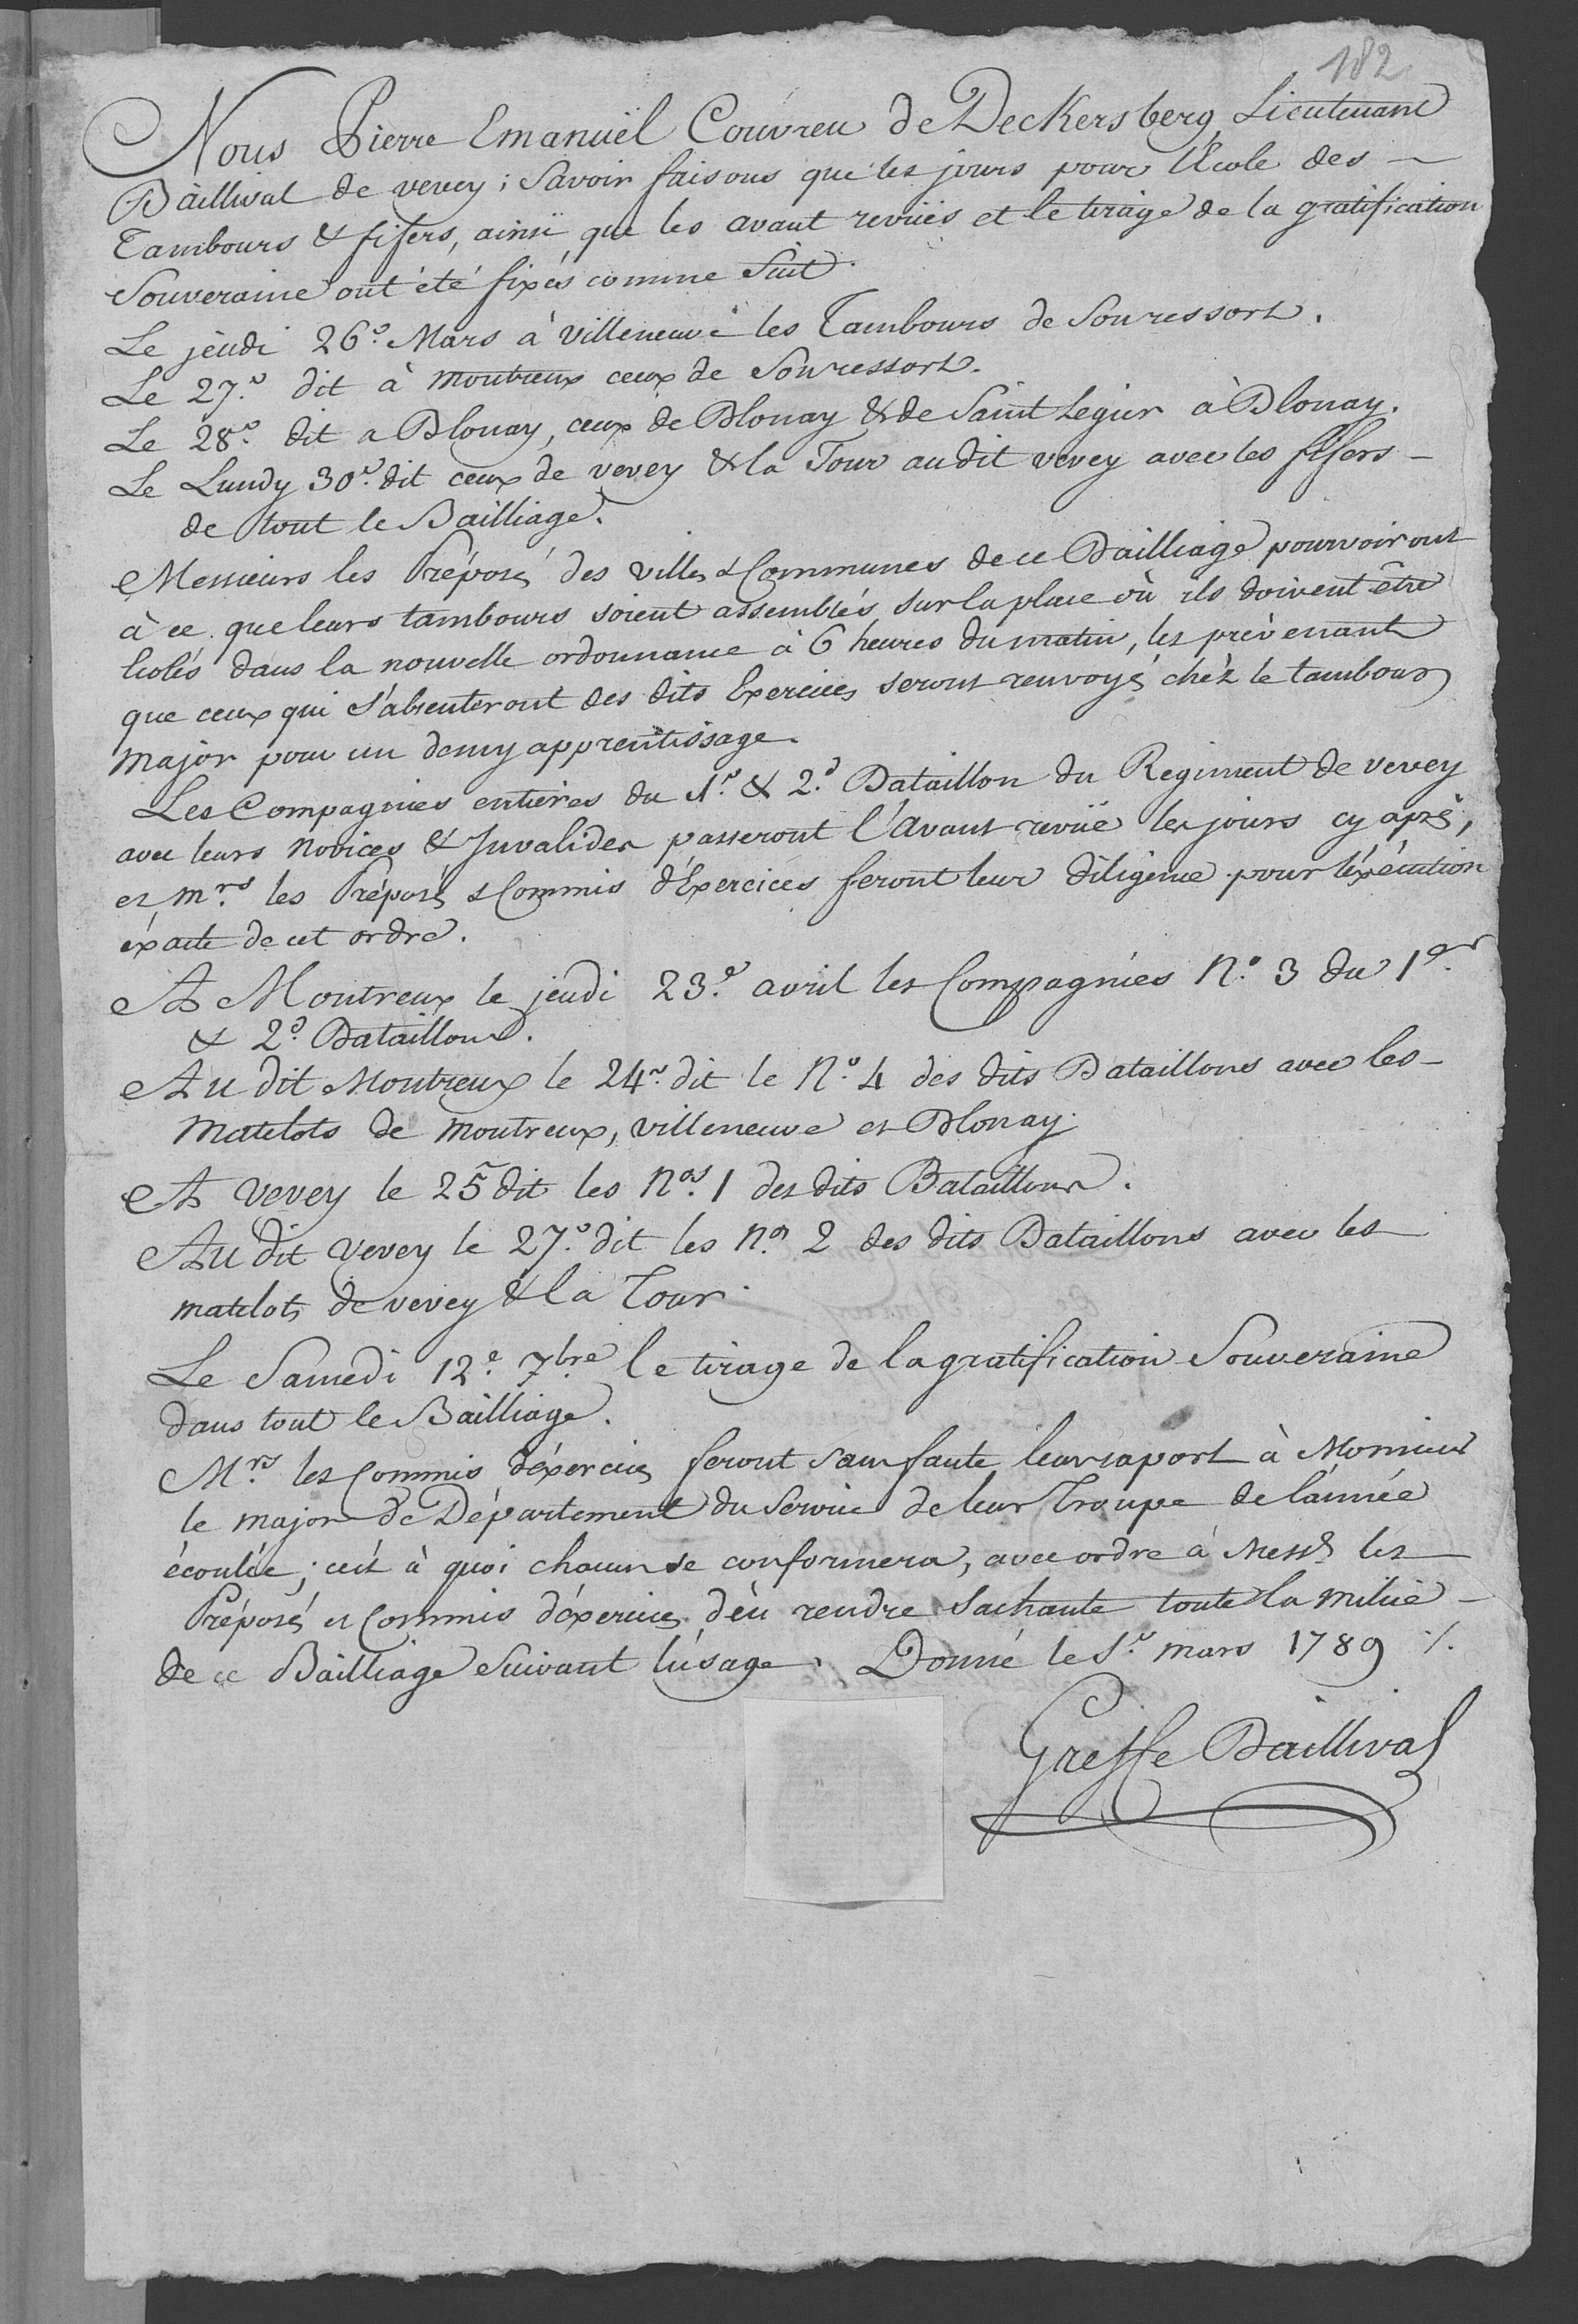 182
Nous Pierre Emanuël Couvreu de Deckersberg, Lieutenant
Baillival de vevey ; Savoir faisons que les jours pour l'Ecole des
Tambours & fifers, ainsi que les avant revües et le tirage de la gratification
Souveraine ont été fixés comme Suit.
Le jeudi 26.e Mars à Villeneuve les Tambours de Son ressort.
Le 27.e dit à Montreux ceux de Son ressort.
Le 28.e dit a Blonay, ceux de Blonay & de Saint Legier à Blonay.
Le Lundy 30.e dit ceux de vevey & la Tour au dit vevey avec les fifers
de tout le Bailliage.
Messieurs les Préposés des villes & Communes de ce Bailliage pourvoiront
à ce que leurs tambours soient assemblés sur la place où ils doivent être
Ecolés dans la nouvelle ordonnance à 6 heures du matin, les prévenant
que ceux qui s'absenteront des dits Exercices seront renvoyés chéz le tambour
Major pour un demy apprentissage.
Les Compagnies entières du 1.r & 2.d Bataillon du Regiment de vevey
avec leurs novices & Invalides passeront l'Avant revüe les jours cy après,
et M.rs les Préposés & Commis d'Exercices feront leur diligence pour l'éxécution
éxacte de cet ordre.
A Montreux le jeudi 23.e avril les Compagnies N.o 3 du 1.er
& 2.d Bataillons.
Au dit Montreux le 24.e dit le N.o 4 des dits Bataillons avec les
Matelots de Montreux, villeneuve et Blonay.
A Vevey le 25 dit les N.os 1 des dits Bataillons.
Au dit Vevey le 27.e dit les N.os 2 des dits Bataillons avec les
matelots de vevey & la Tour.
Le Samedi 12.e 7.bre le tirage de la gratification Souveraine
dans tout le Bailliage.
M.rs les Commis d'éxercices feront sans faute leur raport à Monsieur
le major de Département du Service de leur Troupe de l'année
écoulée ; c'est à quoi chacun se conformera, avec ordre à Mess.rs les
Préposés et Commis d'éxercices d'en rendre Sachante toute la milice
de ce Bailliage Suivant l'usage. Donné le 1.r mars 1789 ./.
Greffe Baillival